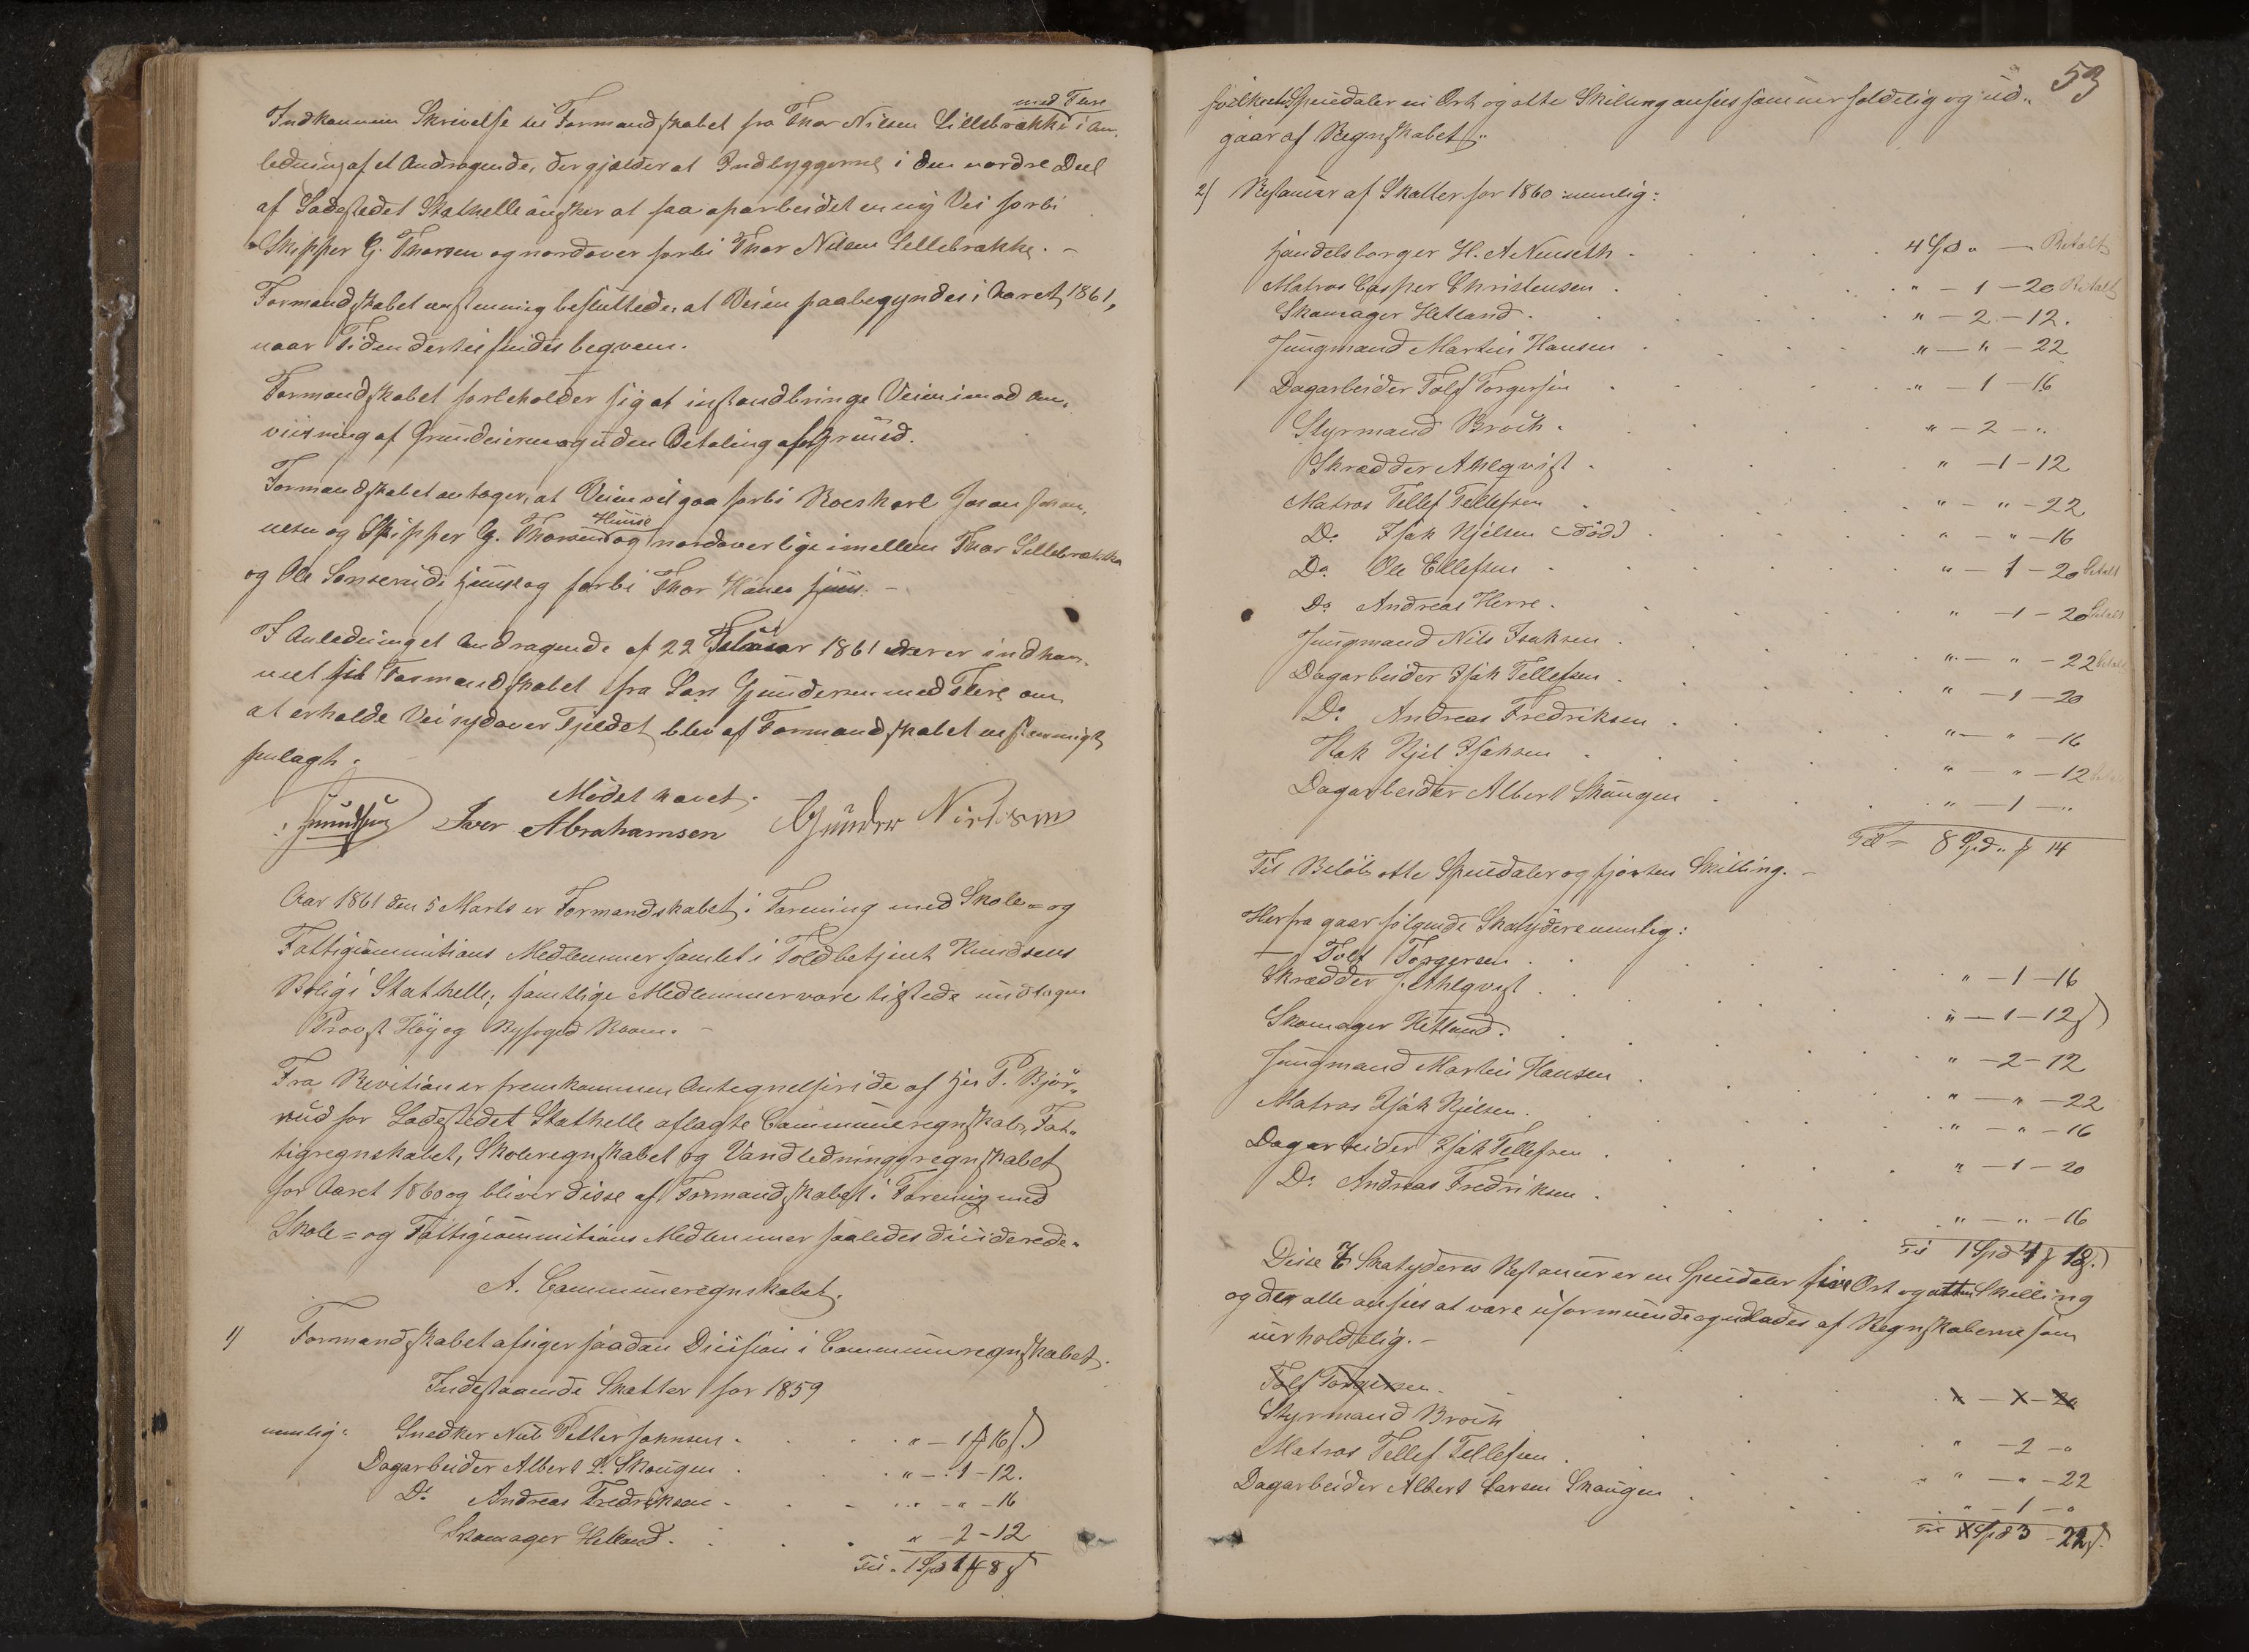 med Flere
Indkommen Skrivelse til Formandskabet fra Thor Nilsen Lillebrække i An-
ledning af et Andragende, der gjælder at Indbyggerne i den nordre Deel
af Ladestedet Stathelle ønsker at faa oparbeidet en ny Vei forbi
Skipper G. Thorsen og nordover forbi Thor Nilsen Lillebrække. -
Formandskabet enstemmig besluttede, at Veien paabegyndes i Aaret 1861,
naar Tiden dertil findes beqvem.
Formandskabet forbeholder sig at istandbringe Veien imod An-
viisning af Grundeierne og uden Betaling af Grund.
Formandskabet antager, at Veien vil gaa forbi Johan Johan-
nesen og Skipper G. Thorsens Huuse og nordover lige imellem Thor Lillebrække
og Ole Huus og forbi Thor Huus. -
I Anledning et Andragende af 22 Februar 1861 der er indkom-
met til Formandskabet fra Lars Gundersen med Flere om
at erholde Vei sydover Fjeldet blev af Formandskabet enstemmigt
henlagt.
Mødet hævet.
Iver Abrahamsen Gunder Nirisen
Aar 1861 den 5 Marts er Formandskabet i Forening med Skole- og
Fattigcommitions Medlemmer samlet i Toldbetjent Knudsens
Bolig i Stathelle; samtlige Medlemmer vare tilstede undtagen
Provst Fløy og Byfoged Roam. -
Fra Revition er fremkommen Antegnelser i de af Her P. Bjør-
rud for Ladestedet Stathelle aflagte Communeregnskab, Fat-
tigregnskabet, Skoleregnskabet og Vandledningsregnskabet
for Aaret 1860 og bliver disse af Formandskabet i Forening med
Skole- og Fattigcommitions Medlemmer saaledes diciderede.
A. Communeregnskabet.
1) Formandskabet afsiger saadan Dicision i Communeregnskabet.
Indestaaende Skatter for 1859
nemlig: Snedker Nils Petter Johnsen . . " - 1 # 16 ß
Dagarbeider Albert L. Skougen . . " - 1 - 12.
Do Andreas Fredriksen . . " - " - 16
Skomager Hetland . . " - 2 - 12
Til. 1 Spd 1 # 8 ß
53
hvilken Speciedaler en Ort og otte Skilling ansees som uerholdelig og ud-
gaar af Regnskabet.
2) Restancer af Skatter for 1860 nemlig:
Handelsborger H. A Neuseth . . 4 Spd " - Betalt
Matros Casper Christensen . . " - 1 - 20 Betalt
Skomager Hetland . . " - 2 - 12.
Jungmand Martin Hansen . . " - " - 22
Dagarbeider Tolf Torgersen . . " - 1 - 16
Styrmand Broch . . " - 2 - "
Skrædder Ahlqvist . . " - 1 - 12
Matros Tellef Tellefsen . . " - " - 22
Do Isak Kjelsen (død) . . " - " - 16
Do Ole Ellefsen . . " - 1 - 20 Betalt
Do Andreas Herre . . " - 1 - 20 Betalt
Jungmand Nils Isaksen . . " - " - 22 Betalt
Dagarbeider Isak Tellefsen . . " - 1 - 20
Do Andreas Fredriksen . . " - " - 16
Kok Kjel Isaksen . . " - " - 12
Dagarbeider Albert Skougen . . " - 1 - "
Til 8 Spd " # 14
Til Beløb otte Speciedaler og fjorten Skilling. -
Herfra gaar følgende Skatydere nemlig:
Tolf Torgersen . . " - 1 - 16
Skrædder J. Ahlqvist . . " - 1 - 12 ß
Skomager Hetland . . " - 2 - 12
Jungmand Martin Hansen . . " - " - 22
Matros Isak Kjelsen . . " - " - 16
Dagarbeider Isak Tellefsen . . " - 1 - 20
Do Andreas Fredriksen . . " - " - 16
Til 1 Spd 4 # 18 ß
Disse 7 Skatyderes Restancer er en Speciedaler fire Ort og atten Skilling
og der alle ansees at være uformuende og udlades af Regnskaberne som
uerholdelig. -
Tolf Torgersen . . " - 1 - 20
Styrmand Broch . . " - 2 - "
Matros Tellef Tellefsen . . " - " - 22
Dagarbeider Albert Larsen Skougen . . " - 1 - "
Til Spd 3 - 22 ß